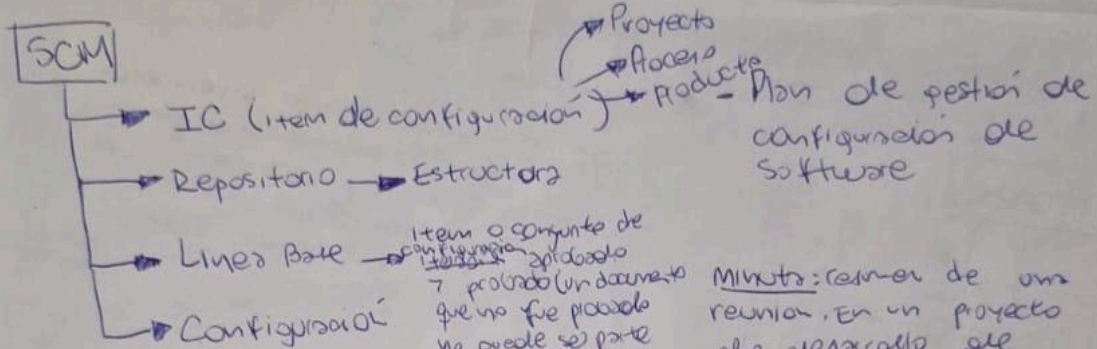 SCM
Proyecto
Proceso
producto
IC (item de configuración)
- Plan de gestión de
configuración de
Software
Repositorio → Estructura
Linea Base → item o conjunto de
configuración aprobado
y probado (un documento
que no fue probado
no puede ser parte
Configuración
Minuta: resumen de una
reunion. En un proyecto
de desarrollo de